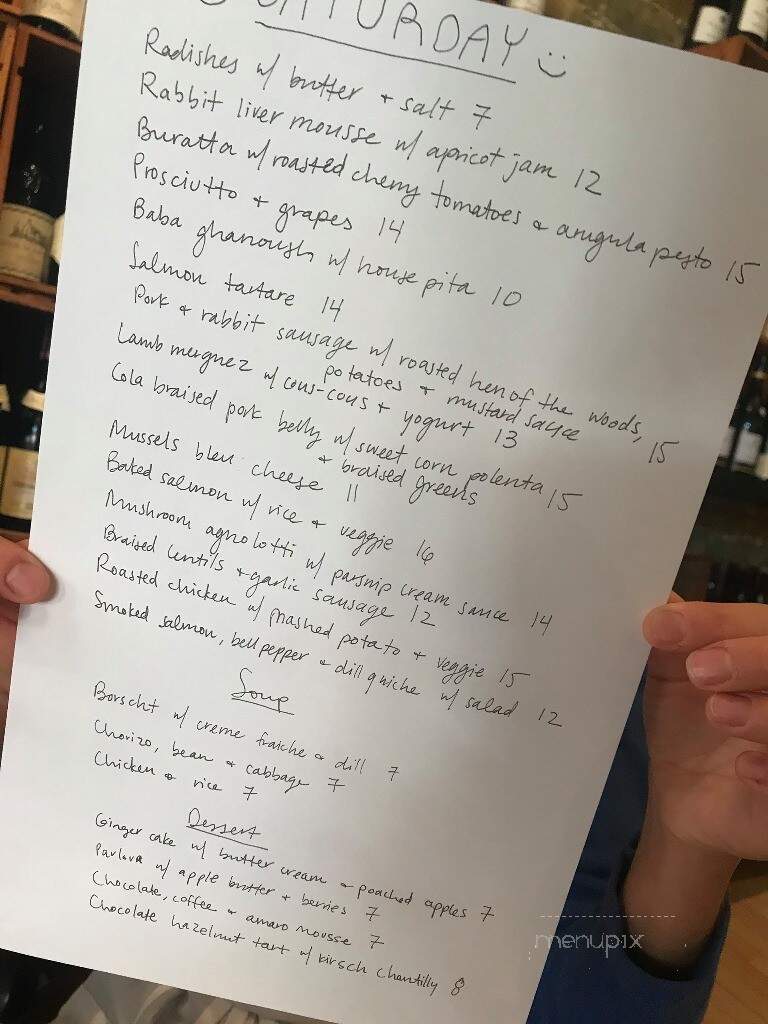 SATURDAY
Radishes w/ butter + salt 7
Rabbit liver mousse w/ apricot jam 12
Buratta w/ roasted cherry tomatoes + arugula pesto 15
Prosciutto + grapes 14
Baba ghanoush w/ house pita 10
Salmon tartare 14
Pork + rabbit sausage w/ roasted hen of the woods,
potatoes + mustard sauce 15
Lamb merguez w/ cous-cous + yogurt 13
Cola braised pork belly w/ sweet corn polenta
+ braised greens 15
Mussels bleu cheese 11
Baked salmon w/ rice + veggie 16
Mushroom agnolotti w/ parsnip cream sauce 14
Braised lentils + garlic sausage 12
Roasted chicken w/ mashed potato + veggie 15
Smoked salmon, bell pepper + dill quiche w/ salad 12
Soup
Borscht w/ creme fraiche + dill 7
Chorizo, bean + cabbage 7
Chicken + rice 7
Dessert
Ginger cake w/ butter cream + poached apples 7
Pavlova w/ apple butter + berries 7
Chocolate, coffee + amaro mousse 7
Chocolate hazelnut tart w/ kirsch chantilly 8
menupix